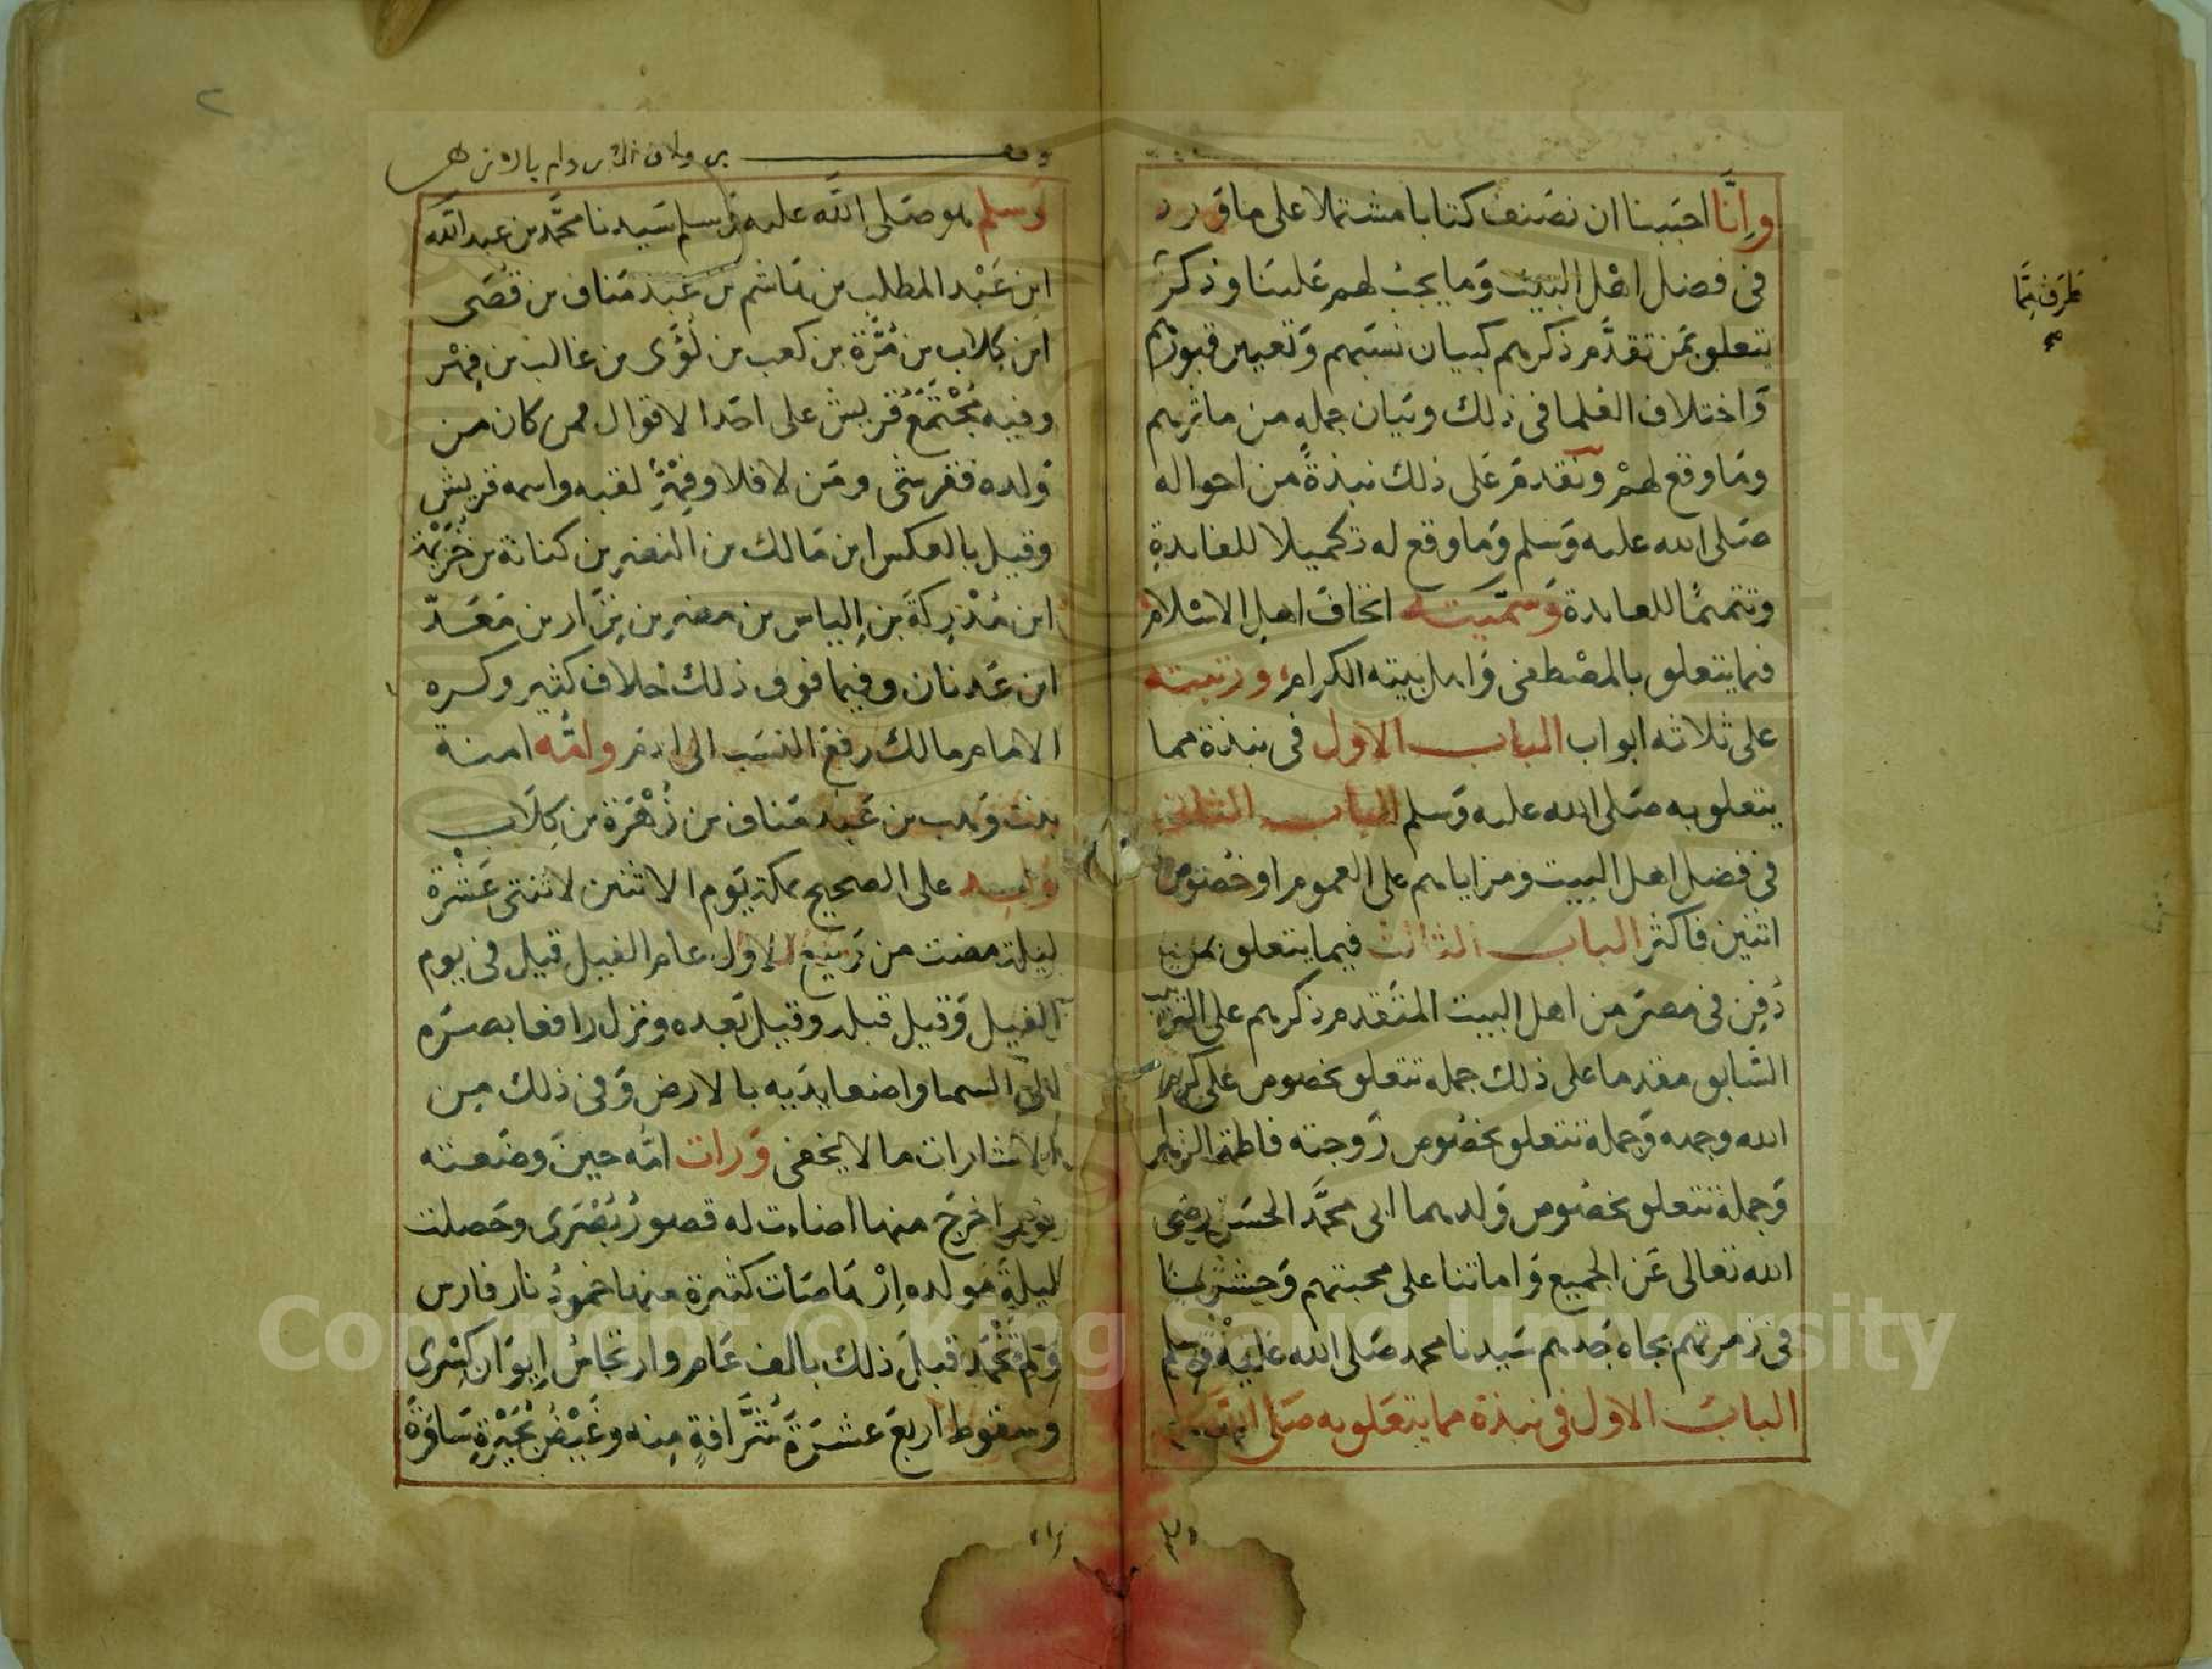 وإنّا احببنا ان نصنف كتابا مشتملا على ما ورد
فى فضل اهل البيت وما يجب لهم علينا وذكر
طرف مما
صح
يتعلق بمن تقدم ذكرهم كبيان نسبهم وتعيين قبورهم
واختلاف العلما فى ذلك وبيان جملة من ماثرهم
وما وقع لهم ونقدم على ذلك نبذة من احواله
صلى الله عليه وسلم وما وقع له تكميلا للفايدة
وتتميما للعايدة وسميته اتحاف اهل الاسلام
فيما يتعلق بالمصطفى واهل بيته الكرام ورتبته
على ثلاثه ابواب الباب الاول فى نبذة مما
يتعلق به صلى الله عليه وسلم الباب الثانى
فى فضل اهل البيت ومزاياهم على العموم او خصوص
اثنين فاكثر الباب الثالث فيما يتعلق بمن
دفن فى مصر من اهل البيت المتقدم ذكرهم على الترتيب
السابق مقدما على ذلك جملة تتعلق بخصوص على كرم
الله وجهه وجملة تتعلق بخصوص زوجته فاطمة الزهرا
وجملة تتعلق بخصوص ولدهما ابى محمد الحسن رضى
الله تعالى عن الجميع واماتنا على محبتهم وحشرنا
فى زمرتهم بجاه جدهم سيدنا محمد صلى الله عليه وسلم
الباب الاول فى نبذة مما يتعلق به صلى الله عليه
وسلم
٢
وقف
وسلم هو صلى الله عليه وسلم سيدنا محمد بن عبد الله
ابن عبد المطلب بن هاشم بن عبد مناف بن قصى
ابن كلاب بن مرة بن كعب بن لؤى بن غالب بن فهر
وفيه مجتمع قريش على احد الاقوال فمن كان من
ولده فقرشى ومن لا فلا وفهر لقبه واسمه قريش
وقيل بالعكس ابن مالك بن النضر بن كنانة بن خزيمة
ابن مدركة بن إلياس بن مضر بن نزار بن معدّ
ابن عدنان وفيما فوق ذلك خلاف كثير وكره
الامام مالك رفع النسب الى ادم وامه امنة
بنت وهب بن عبد مناف بن زهرة بن كلاب
ولد على الصحيح بمكة يوم الاثنين لاثنتى عشرة
ليلة مضت من ربيع الاول عام الفيل قيل فى يوم
الفيل وقيل قبله وقيل بعده ونزل رافعا بصره
الى السما واضعا يديه بالارض وفى ذلك من
الاشارات ما لا يخفى ورات امه حين وضعته
نورا خرج منها اضاءت له قصور بصرى وحصلت
ليلة مولده إرهاصات كثيرة منها خمود نار فارس
ولم تخمد قبل ذلك بالف عام وارتجاس إيوان كسرى
وسقوط اربع عشرة شرافة منه وغيض بحيرة ساوة
Copyright © King Saud University